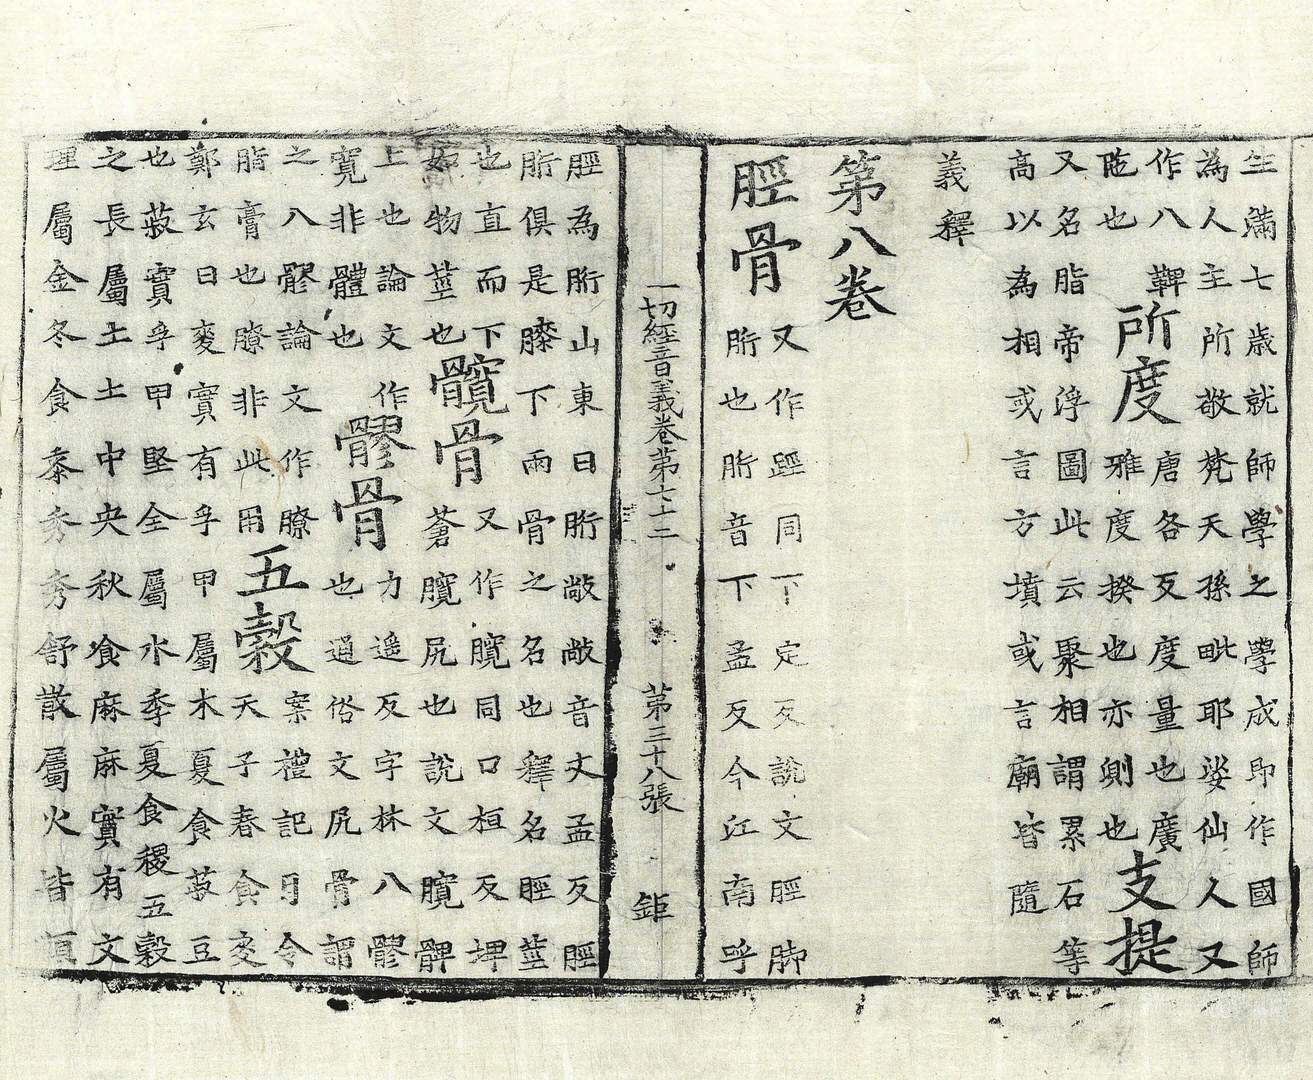 生滿七歲就師學之學成即作國師
為人主所敬梵天孫毗耶娑仙人又
作八鞞
陁也
所度
唐各反度量也廣
雅度揆也亦則也
支提
又名脂帝浮圖此云聚相謂累石等
高以為相或言方墳或言廟皆隨
義釋
第八卷
脛骨
又作踁同下定反說文脛脚
胻也胻音下孟反今江南呼
一切經音義卷第七十二 第三十八張 鉅
脛為胻山東曰胻敞敞音丈孟反脛
胻俱是膝下兩骨之名也釋名脛莖
也直而下
如物莖也
髖骨
又作臗同口桓反埤
蒼臗尻也說文臗髀
上也論文作
寬非體也
髎骨
力遥反字林八髎
也通俗文尻骨謂
之八髎論文作膫案禮記月令
脂膏也膫非此用
五穀
天子春食麥
鄭玄曰麥實有孚甲屬木夏食菽豆
也菽實孚甲堅全屬水季夏食稷五穀
之長屬土土中央秋飡麻麻實有文
理屬金冬食黍秀秀舒散屬火皆須